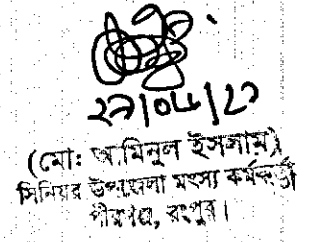 ২৯/০৮/২১
(মো: আমিনুল ইসলাম)
সিনিয়র উপজেলা মৎস্য কর্মকর্তা
পীরগঞ্জ, রংপুর।